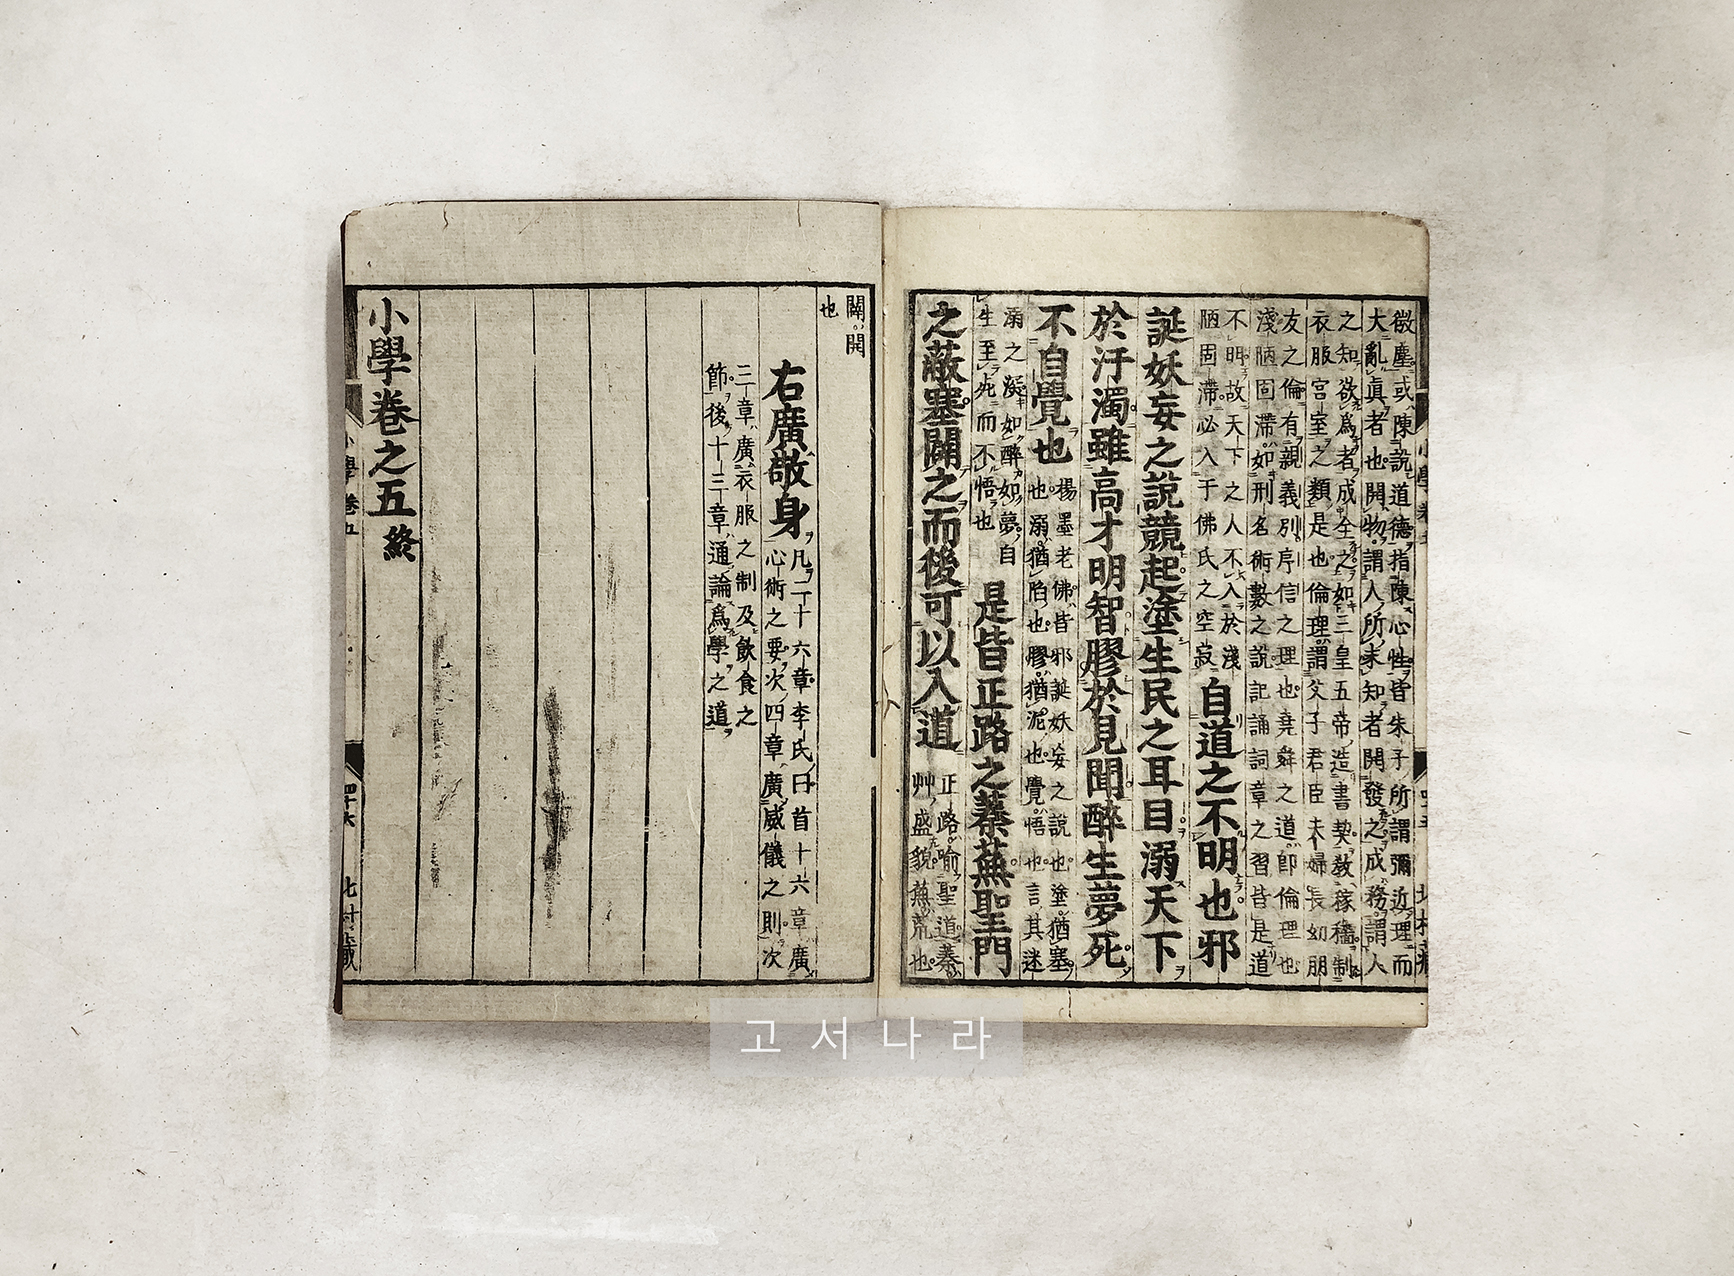 微塵或陳說道德指陳心性皆朱子所謂彌近理而
大亂眞者也開物謂人所未知者開發之成務謂人
之知欲爲者成全之如三皇五帝造書契敎稼穡制
衣服宮室之類是也倫理謂父子君臣夫婦長幼朋
友之倫有親義別序信之理也堯舜之道卽倫理也
淺陋固滯如刑名術數之說記誦詞章之習皆是道
不明故天下之人不入於淺
陋固滯必入于佛氏之空寂
自道之不明也邪
誕妖妄之說競起塗生民之耳目溺天下
於汙濁雖高才明智膠於見聞醉生夢死
不自覺也
楊墨老佛皆邪誕妖妄之說也塗猶塞
也溺猶陷也膠猶泥也覺悟也言其迷
溺之凝如醉如夢自
生至死而不悟也
是皆正路之蓁蕪聖門
之蔽塞闢之而後可以入道
正路喻聖道蓁
艸盛貌蕪荒也
闢開
也
右廣敬身
凡二十六章李氏曰首十六章廣
心術之要次四章廣威儀之則次
三章廣衣服之制及飮食之
節後十三章通論爲學之道
小學卷之五 終
小學 卷五
四十六
고서나라